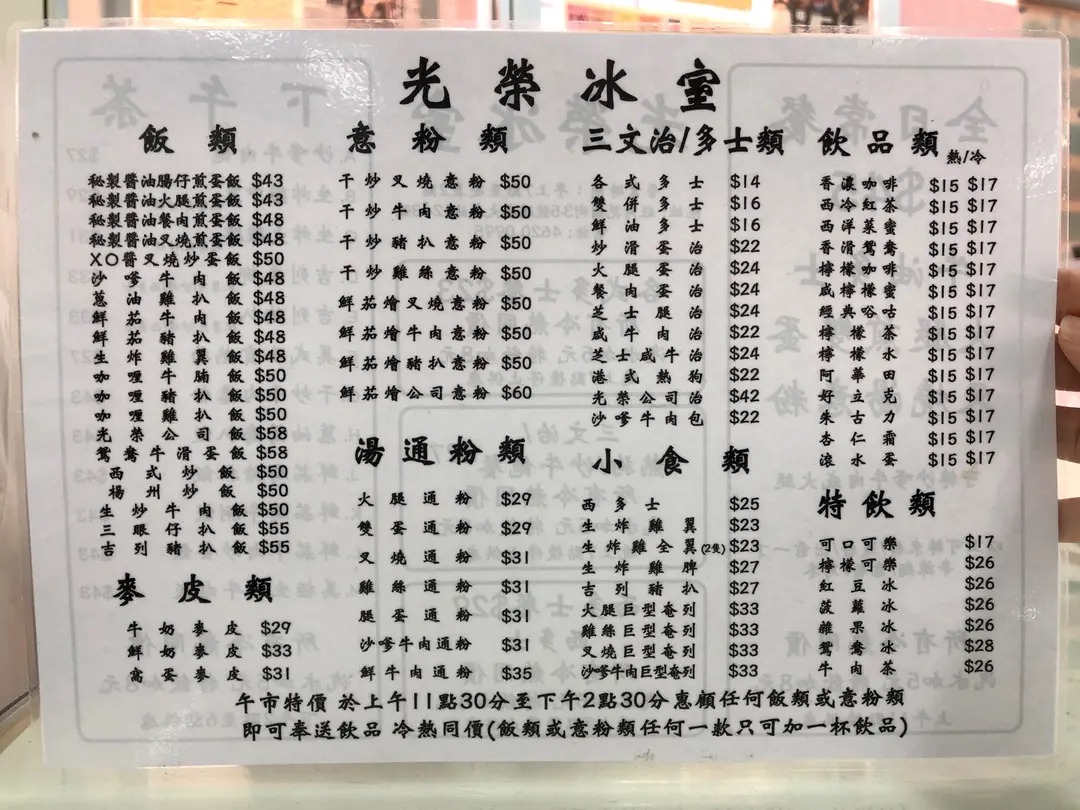 光榮冰室
飯類
秘製醬油腸仔煎蛋飯 $43
秘製醬油火腿煎蛋飯 $43
秘製醬油餐肉煎蛋飯 $48
秘製醬油叉燒煎蛋飯 $48
XO醬叉燒炒蛋飯 $50
沙嗲牛肉飯 $48
蔥油雞扒飯 $48
鮮茄牛肉飯 $48
鮮茄豬扒飯 $48
生炸雞翼飯 $50
咖喱牛腩飯 $50
咖喱豬扒飯 $50
咖喱雞扒飯 $50
光榮公司飯 $58
鴛鴦牛滑蛋飯 $58
西式炒飯 $50
楊州炒飯 $50
生炒牛肉飯 $50
三眼仔扒飯 $55
吉列豬扒飯 $55
麥皮類
牛奶麥皮 $29
鮮奶麥皮 $33
窩蛋麥皮 $31
意粉類
干炒叉燒意粉 $50
干炒牛肉意粉 $50
干炒豬扒意粉 $50
干炒雞絲意粉 $50
鮮茄燴叉燒意粉 $50
鮮茄燴牛肉意粉 $50
鮮茄燴豬扒意粉 $50
鮮茄燴公司意粉 $60
湯通粉類
火腿通粉 $29
雙蛋通粉 $29
叉燒通粉 $31
雞絲通粉 $31
腿蛋通粉 $31
沙嗲牛肉通粉 $31
鮮牛肉通粉 $35
三文治/多士類
各式多士 $14
雙併多士 $16
鮮油多士 $16
炒滑蛋治 $22
火腿蛋治 $24
餐肉蛋治 $24
芝士腿治 $24
咸牛肉治 $22
芝士咸牛治 $24
港式熱狗 $22
光榮公司治 $42
沙嗲牛肉包 $22
小食類
西多士 $25
生炸雞翼 $23
生炸雞全翼(2隻) $23
生炸雞脾 $27
吉列豬扒 $27
火腿巨型奄列 $33
雞絲巨型奄列 $33
叉燒巨型奄列 $33
沙嗲牛肉巨型奄列 $33
飲品類 熱/冷
香濃咖啡 $15 $17
西冷紅茶 $15 $17
西洋菜蜜 $15 $17
香滑鴛鴦 $15 $17
檸檬咖啡 $15 $17
咸檸檬蜜 $15 $17
經典唂咕 $15 $17
檸檬茶 $15 $17
檸檬水 $15 $17
阿華田 $15 $17
好立克 $15 $17
朱古力 $15 $17
杏仁霜 $15 $17
滾水蛋 $15 $17
特飲類
可口可樂 $17
檸檬可樂 $26
紅豆冰 $26
菠蘿冰 $26
雜果冰 $26
鴛鴦冰 $28
牛肉茶 $26
午市特價 於上午11點30分至下午2點30分惠顧任何飯類或意粉類
即可奉送飲品 冷熱同價(飯類或意粉類任何一款只可加一杯飲品)